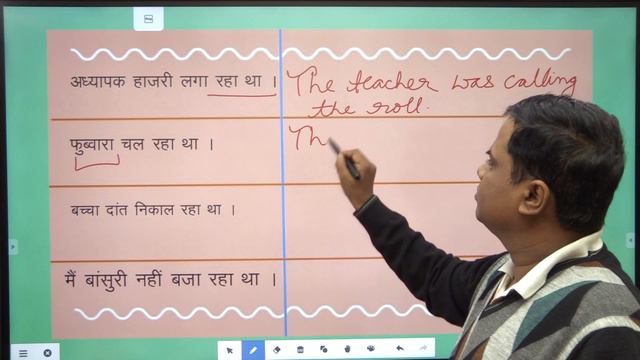 अध्यापक हाजरी लगा रहा था । The teacher was calling
the roll.
फुब्वारा चल रहा था । Th
बच्चा दांत निकाल रहा था ।
मैं बांसुरी नहीं बजा रहा था ।